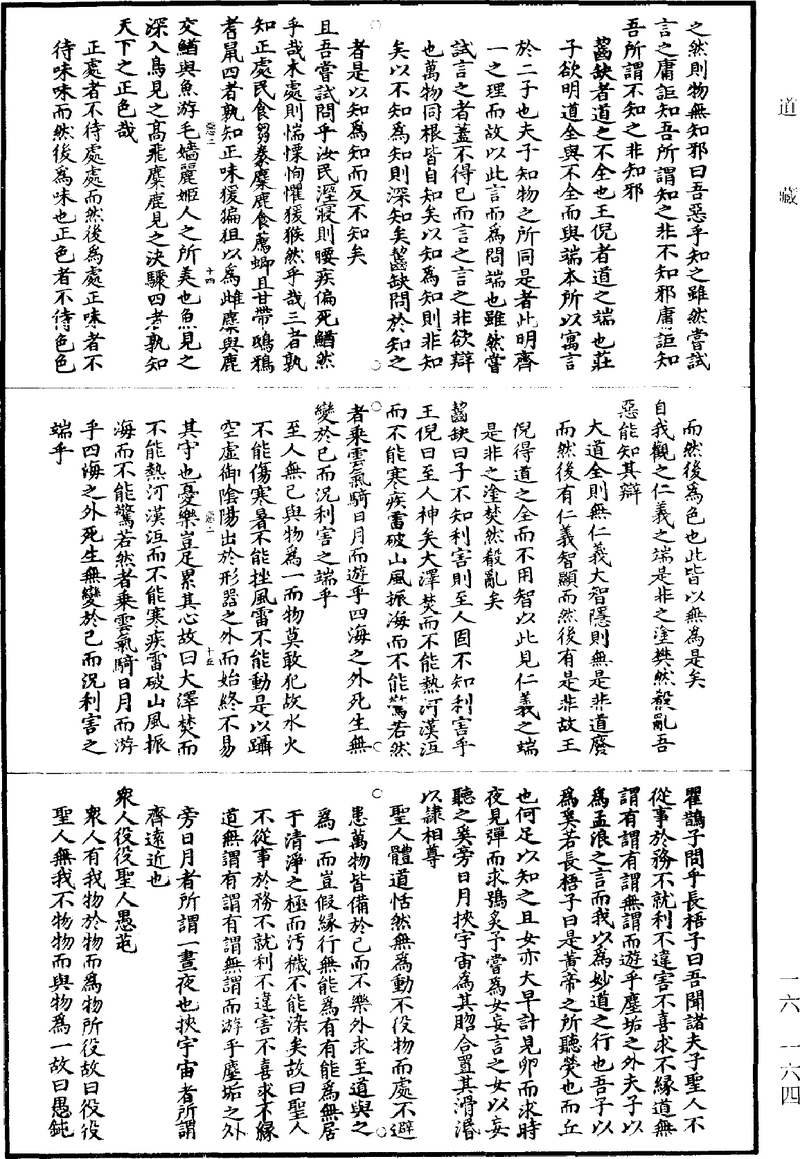 道藏
之然則物無知邪曰吾惡乎知之雖然嘗試
言之庸詎知吾所謂知之非不知邪庸詎知
吾所謂不知之非知邪
齧缺者道之不全也王倪者道之端也莊
子欲明道全與不全而與端本所以寓言
於二子也夫子知物之所同是者此明齊
一之理而故以此言而為問端也雖然嘗
試言之者蓋不得已而言之言之非欲辯
也萬物同根皆自知矣以知為知則非知
矣以不知為知則深知矣齧缺問於知之
者是以知為知而反不知矣
且吾嘗試問乎汝民溼寢則腰疾偏死鰌然
乎哉木處則惴慄恂懼猨猴然乎哉三者孰
知正處民食芻豢麋鹿食薦蝍且甘帶鴟鴉
耆鼠四者孰知正味猨猵狙以為雌麋與鹿
交鰌與魚游毛嬙麗姬人之所美也魚見之
深入鳥見之高飛麋鹿見之決驟四者孰知
天下之正色哉
正處者不待處處而然後為處正味者不
待味味而然後為味也正色者不待色色
十四
而然後為色也此皆以無為是矣
自我觀之仁義之端是非之塗樊然殽亂吾
惡能知其辯
大道全則無仁義大智隱則無是非道廢
而然後有仁義智顯而然後有是非故王
倪得道之全而不用智以此見仁義之端
是非之塗樊然殽亂矣
齧缺曰子不知利害則至人固不知利害乎
王倪曰至人神矣大澤焚而不能熱河漢沍
而不能寒疾雷破山風振海而不能驚若然
者乘雲氣騎日月而遊乎四海之外死生無
變於己而況利害之端乎
至人無己與物為一而物莫敢犯故水火
不能傷寒暑不能挫風雷不能動是以躡
空虛御陰陽出於形器之外而始終不易
其守也憂樂豈足累其心故曰大澤焚而
不能熱河漢沍而不能寒疾雷破山風振
海而不能驚若然者乘雲氣騎日月而游
乎四海之外死生無變於己而況利害之
端乎
十五
瞿鵲子問乎長梧子曰吾聞諸夫子聖人不
從事於務不就利不違害不喜求不緣道無
謂有謂有謂無謂而遊乎塵垢之外夫子以
為孟浪之言而我以為妙道之行也吾子以
為奚若長梧子曰是黃帝之所聽熒也而丘
也何足以知之且女亦大早計見卵而求時
夜見彈而求鴞炙予嘗為女妄言之女以妄
聽之奚旁日月挾宇宙為其脗合置其滑涽
以隸相尊
聖人體道恬然無為動不役物而處不避
患萬物皆備於己而不樂外求至道與之
為一而豈假緣行無能為有有能為無居
于清淨之極而汚穢不能染矣故曰聖人
不從事於務不就利不違害不喜求不緣
道無謂有謂有謂無謂而游乎塵垢之外
旁日月者所謂一晝夜也挾宇宙者所謂
齊遠近也
眾人役役聖人愚芚
眾人有我物於物而為物所役故曰役役
聖人無我不物物而與物為一故曰愚鈍
一六 一六四